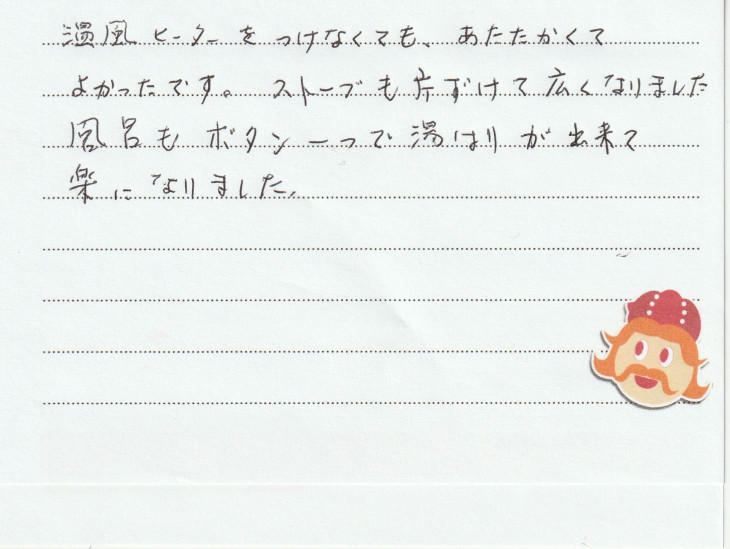 温風ヒーターをつけなくても、あたたかくて
よかったです。ストーブも片ずけて広くなりました
風呂もボタン一つで湯はりが出来て
楽になりました。